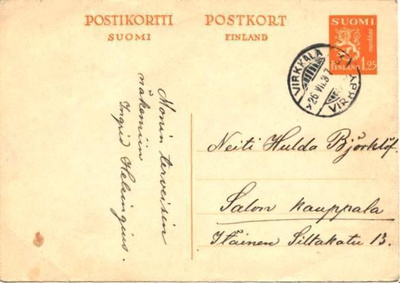 POSTIKORTTI
SUOMI
POSTKORT
FINLAND
SUOMI
FINLAND 1,25
VIRKKALA
26.VII.37
VIRKBY
Monin terveisin
näkemiin
Ingrid Helsingius.
Neiti Hulda Björklöf.
Salon kauppala
Itäinen Siltakatu 13.